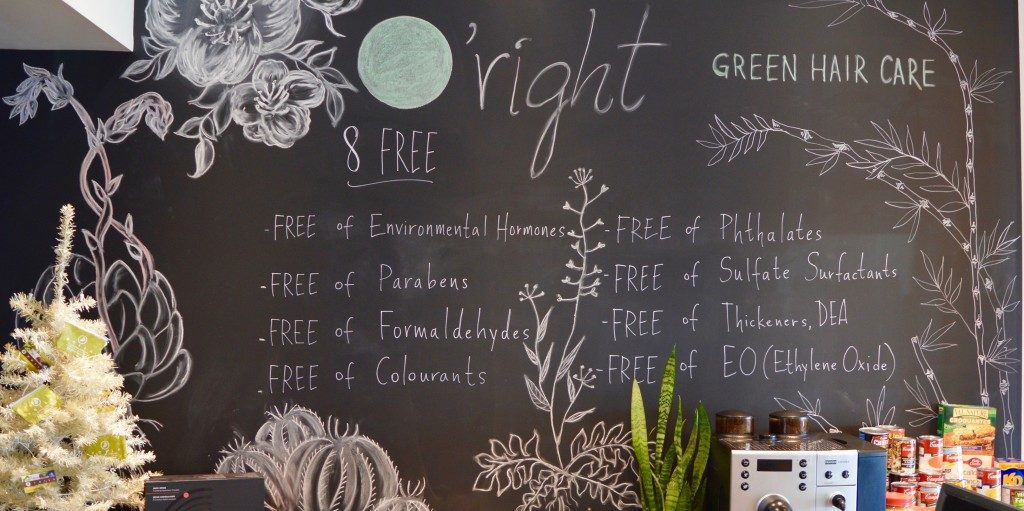 O'right
GREEN HAIR CARE
8 FREE
-FREE of Environmental Hormones
-FREE of Parabens
-FREE of Formaldehydes
-FREE of Colourants
-FREE of Phthalates
-FREE of Sulfate Surfactants
-FREE of Thickeners, DEA
-FREE of EO (Ethylene Oxide)